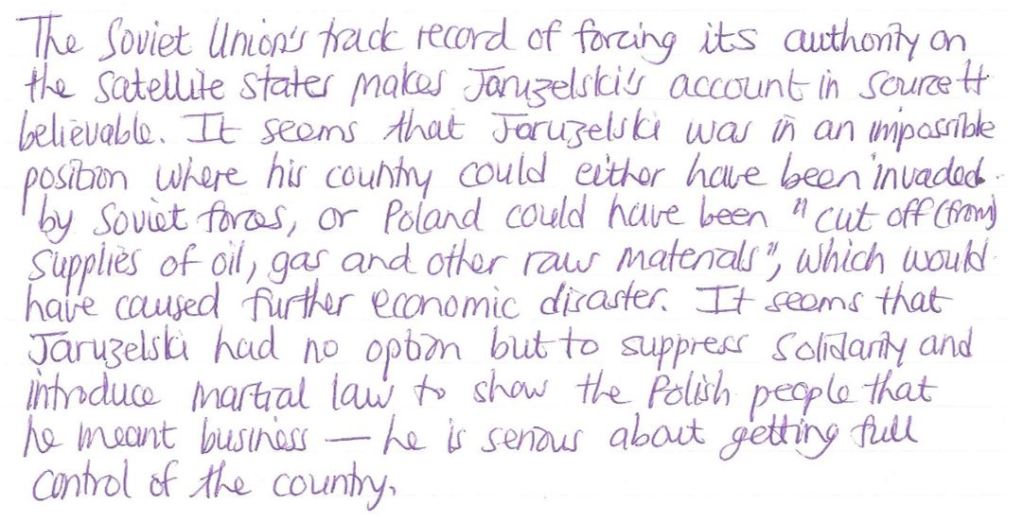 The Soviet Union's track record of forcing its authority on
the satellite states makes Jaruzelski's account in source H
believable. It seems that Jaruzelski was in an impossible
position where his country could either have been invaded
by Soviet forces, or Poland could have been "cut off (from)
supplies of oil, gas and other raw materials", which would
have caused further economic disaster. It seems that
Jaruzelski had no option but to suppress Solidarity and
introduce martial law to show the Polish people that
he meant business — he is serious about getting full
control of the country.